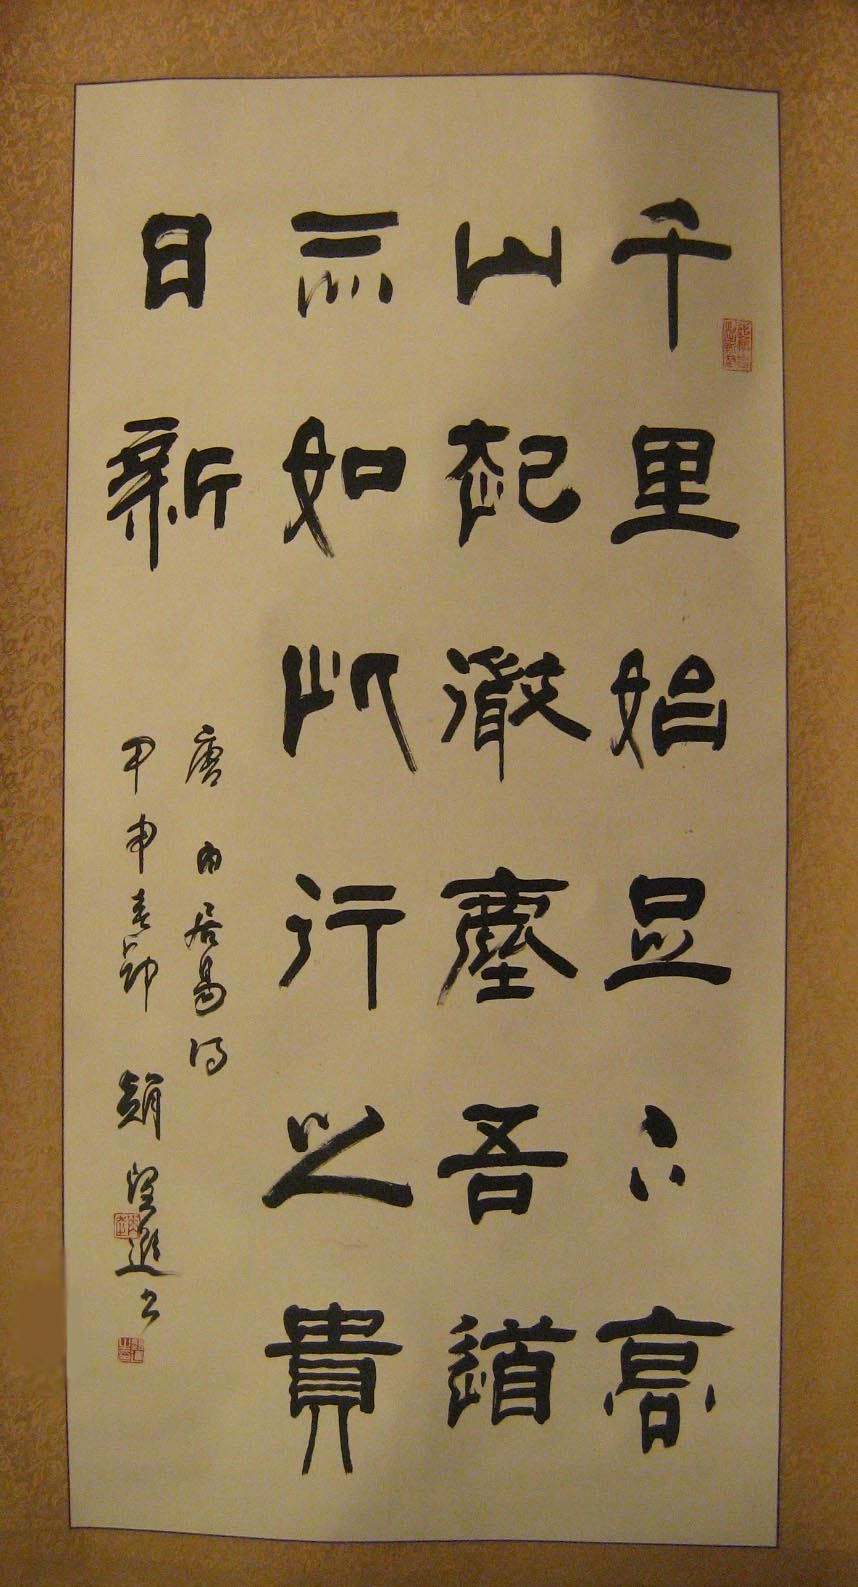 千里始足下高
山起微塵吾道
亦如此行之貴
日新
唐白居易詩
甲申春節 趙望進书